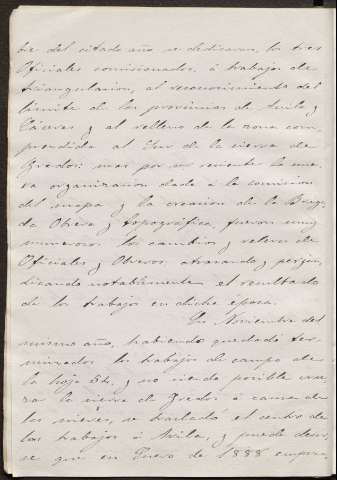 bre del citado año se dedicaron, los tres
Oficiales comisionados, á trabajos de
triangulacion, al reconocimiento del
límite de las provincias de Avila y
Cáceres y al relleno de la zona com-
prendida al Sur de la sierra de
Gredos: mas por ser reciente la nue-
va organizacion dada á la comision
del mapa y la creacion de la Briga-
da Obrera y topográfica, fueron muy
numerosos los cambios y relevos de
Oficiales y Obreros, atrasando y perju-
dicando notablemente el resultado
de los trabajos en dicha época.
En Noviembre del
mismo año, habiendo quedado ter-
minados los trabajos de campo de
la hoja 54, y no siendo posible cru-
zar la sierra de Gredos á causa de
las nieves, se trasladó el centro de
los trabajos á Avila, y puede decir-
se que en Enero de 1888 empeza-